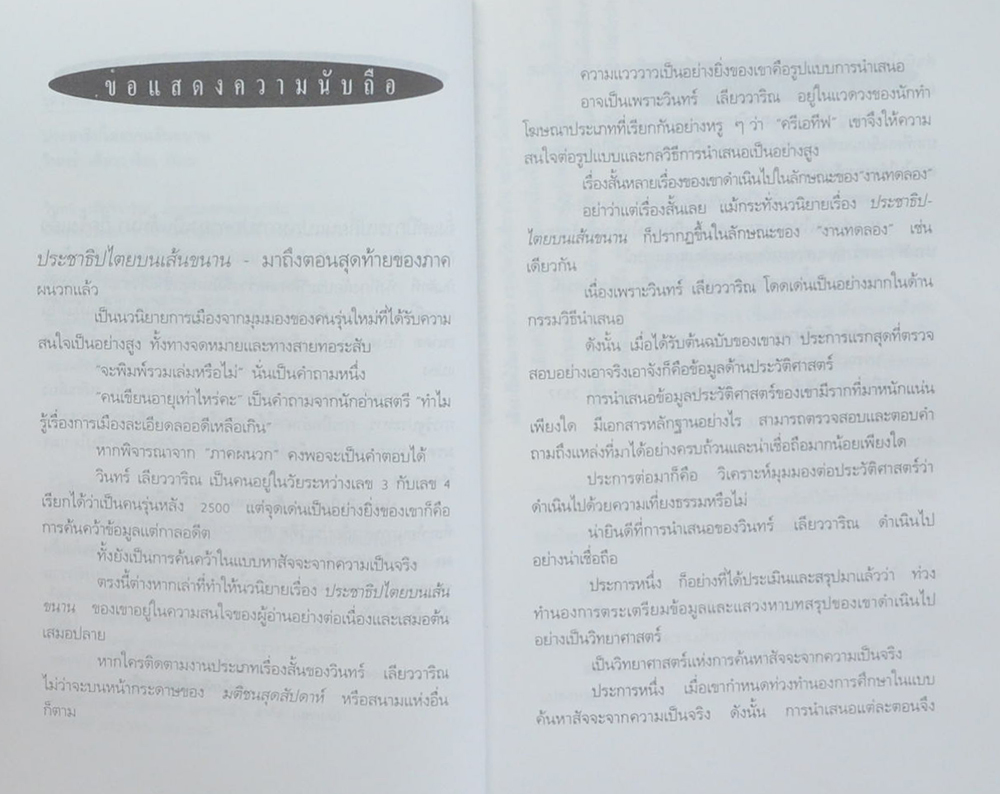 ข้อแสดงความนับถือ
ประชาธิปไตยบนเส้นขนาน - มาถึงตอนสุดท้ายของภาค
ผนวกแล้ว
เป็นนวนิยายการเมืองจากมุมมองของคนรุ่นใหม่ที่ได้รับความ
สนใจเป็นอย่างสูง ทั้งทางจดหมายและทางสายทอระสับ
"จะพิมพ์รวมเล่มหรือไม่" นั่นเป็นคำถามหนึ่ง
"คนเขียนอายุเท่าไหร่คะ" เป็นคำถามจากนักอ่านสตรี "ทำไม
รู้เรื่องการเมืองละเอียดลออดีเหลือเกิน"
หากพิจารณาจาก "ภาคผนวก" คงพอจะเป็นคำตอบได้
วินทร์ เลียววาริณ เป็นคนอยู่ในวัยระหว่างเลข 3 กับเลข 4
เรียกได้ว่าเป็นคนรุ่นหลัง 2500 แต่จุดเด่นเป็นอย่างยิ่งของเขาก็คือ
การค้นคว้าข้อมูลแต่กาลอดีต
ทั้งยังเป็นการค้นคว้าในแบบหาสัจจะจากความเป็นจริง
ตรงนี้ต่างหากเล่าที่ทำให้นวนิยายเรื่อง ประชาธิปไตยบนเส้น
ขนาน ของเขาอยู่ในความสนใจของผู้อ่านอย่างต่อเนื่องและเสมอต้น
เสมอปลาย
หากใครติดตามงานประเภทเรื่องสั้นของวินทร์ เลียววาริณ
ไม่ว่าจะบนหน้ากระดาษของ มติชนสุดสัปดาห์ หรือสนามแห่งอื่น
ก็ตาม
ความแวววาวเป็นอย่างยิ่งของเขาคือรูปแบบการนำเสนอ
อาจเป็นเพราะวินทร์ เลียววาริณ อยู่ในแวดวงของนักทำ
โฆษณาประเภทที่เรียกกันอย่างหรู ๆ ว่า "ครีเอทีฟ" เขาจึงให้ความ
สนใจต่อรูปแบบและกลวิธีการนำเสนอเป็นอย่างสูง
เรื่องสั้นหลายเรื่องของเขาดำเนินไปในลักษณะของ"งานทดลอง"
อย่าว่าแต่เรื่องสั้นเลย แม้กระทั่งนวนิยายเรื่อง ประชาธิป-
ไตยบนเส้นขนาน ก็ปรากฏขึ้นในลักษณะของ "งานทดลอง" เช่น
เดียวกัน
เนื่องเพราะวินทร์ เลียววาริณ โดดเด่นเป็นอย่างมากในด้าน
กรรมวิธีนำเสนอ
ดังนั้น เมื่อได้รับต้นฉบับของเขามา ประการแรกสุดที่ตรวจ
สอบอย่างเอาจริงเอาจังก็คือข้อมูลด้านประวัติศาสตร์
การนำเสนอข้อมูลประวัติศาสตร์ของเขามีรากที่มาหนักแน่น
เพียงใด มีเอกสารหลักฐานอย่างไร สามารถตรวจสอบและตอบคำ
ถามถึงแหล่งที่มาได้อย่างครบถ้วนและน่าเชื่อถือมากน้อยเพียงใด
ประการต่อมาก็คือ วิเคราะห์มุมมองต่อประวัติศาสตร์ว่า
ดำเนินไปด้วยความเที่ยงธรรมหรือไม่
น่ายินดีที่การนำเสนอของวินทร์ เลียววาริณ ดำเนินไป
อย่างน่าเชื่อถือ
ประการหนึ่ง ก็อย่างที่ได้ประเมินและสรุปมาแล้วว่า ท่วง
ทำนองการตระเตรียมข้อมูลและแสวงหาบทสรุปของเขาดำเนินไป
อย่างเป็นวิทยาศาสตร์
เป็นวิทยาศาสตร์แห่งการค้นหาสัจจะจากความเป็นจริง
ประการหนึ่ง เมื่อเขากำหนดท่วงทำนองการศึกษาในแบบ
ค้นหาสัจจะจากความเป็นจริง ดังนั้น การนำเสนอแต่ละตอนจึง